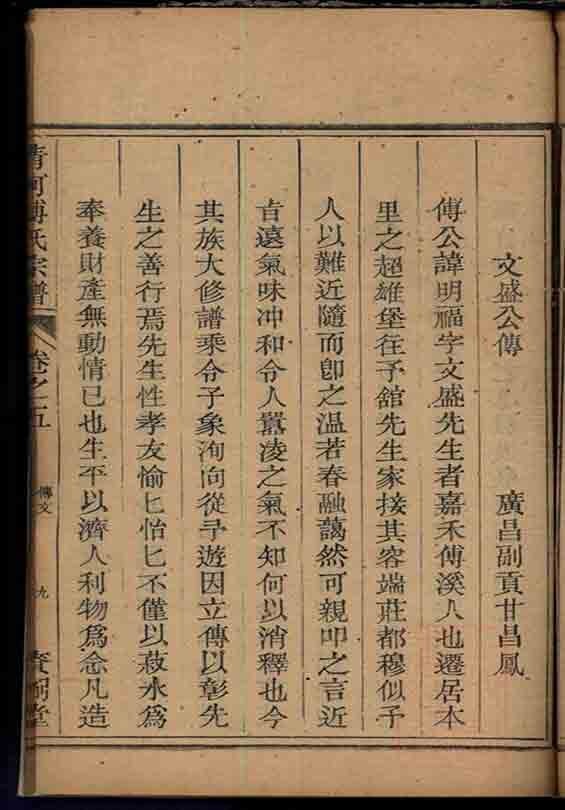 文盛公傳
廣昌副貢甘昌鳳
傅公諱明福字文盛先生者嘉禾傅溪人也遷居本
里之超雄堡徃予舘先生家接其容端莊都穆似予
人以難近隨而卽之温若春融藹然可親叩之言近
㫖遠氣味冲和令人囂淩之氣不知何以消釋也今
其族大修譜乘令子象洵向從予遊因立傳以彰先
生之善行焉先生性孝友愉匕怡匕不僅以菽水爲
奉養財產無動情已也生平以濟人利物爲念凡造
清河傅氏宗譜
卷之五
傳文
九